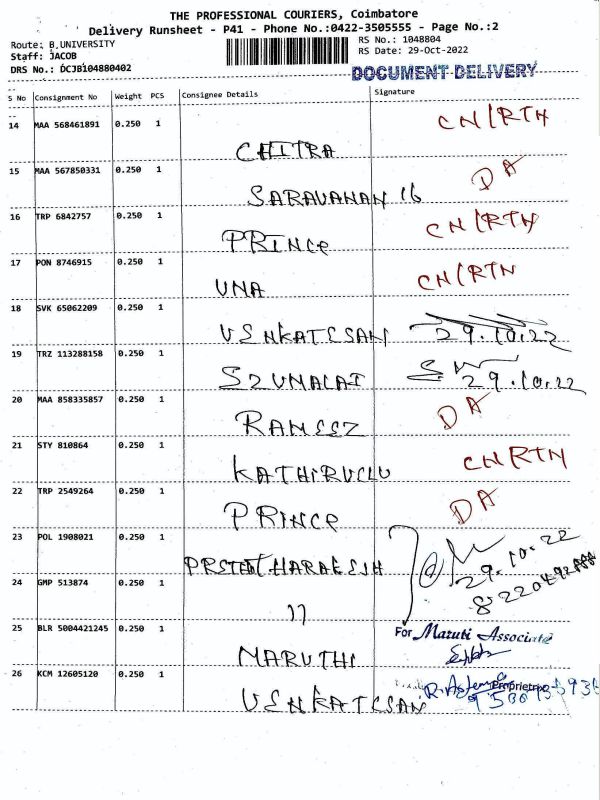 THE PROFESSIONAL COURIERS, Coimbatore
Delivery Runsheet - P41 - Phone No.:0422-3505555 - Page No.:2
Route: B,UNIVERSITY
RS No.: 1048804
Staff: JACOB
RS Date: 29-Oct-2022
DRS No.: DCJB104880402
DOCUMENT DELIVERY
S No Consignment No Weight PCS Consignee Details Signature
14 MAA 568461891 0.250 1 CHITRA CN/RTN
15 MAA 567850331 0.250 1 SARAVANAN 16 DA
16 TRP 6842757 0.250 1 PRINCE CN/RTN
17 PON 8746915 0.250 1 UNA CN/RTN
18 SVK 65062209 0.250 1 VENKATESAN 29.10.22
19 TRZ 113288158 0.250 1 29.10.22
20 MAA 858335857 0.250 1 RAMEEZ DA
21 STY 810864 0.250 1 KATHIRVELU CN/RTN
22 TRP 2549264 0.250 1 PRINCE DA
23 POL 1908021 0.250 1 29.10.22
24 GMP 513874 0.250 1 11
25 BLR 5004421245 0.250 1 MARUTHI For Maruti Associate
26 KCM 12605120 0.250 1 VENKATESAN Proprietrix